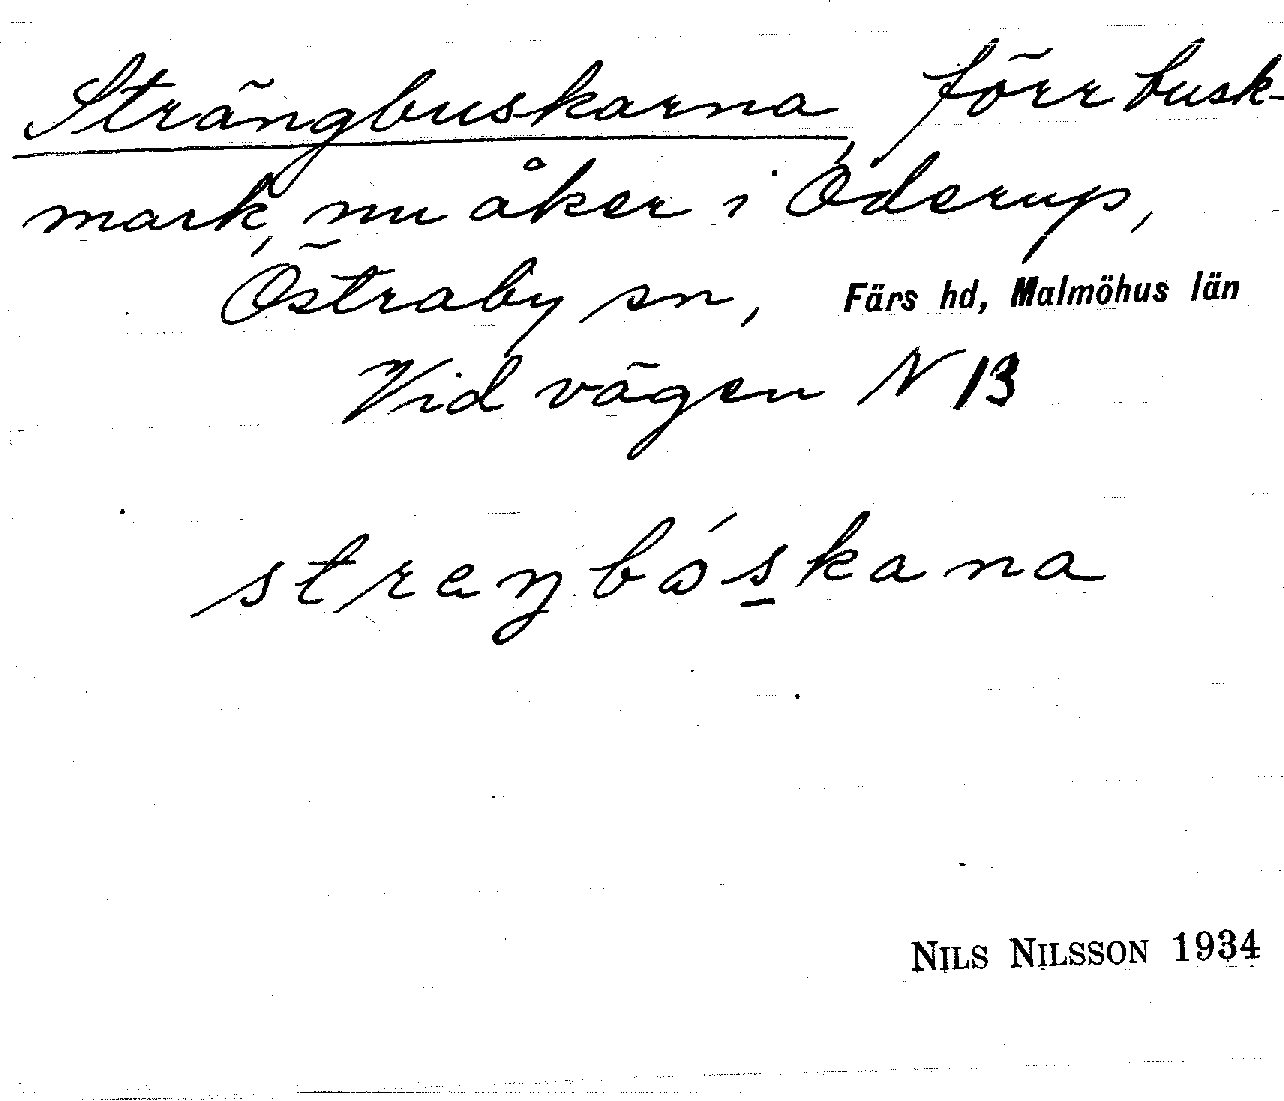 Strängbuskarna, förr busk-
mark, nu åker i Oderup,
Östraby sn, Färs hd, Malmöhus län
Vid vägen N 13
streŋbós̲kana
NILS NILSSON 1934